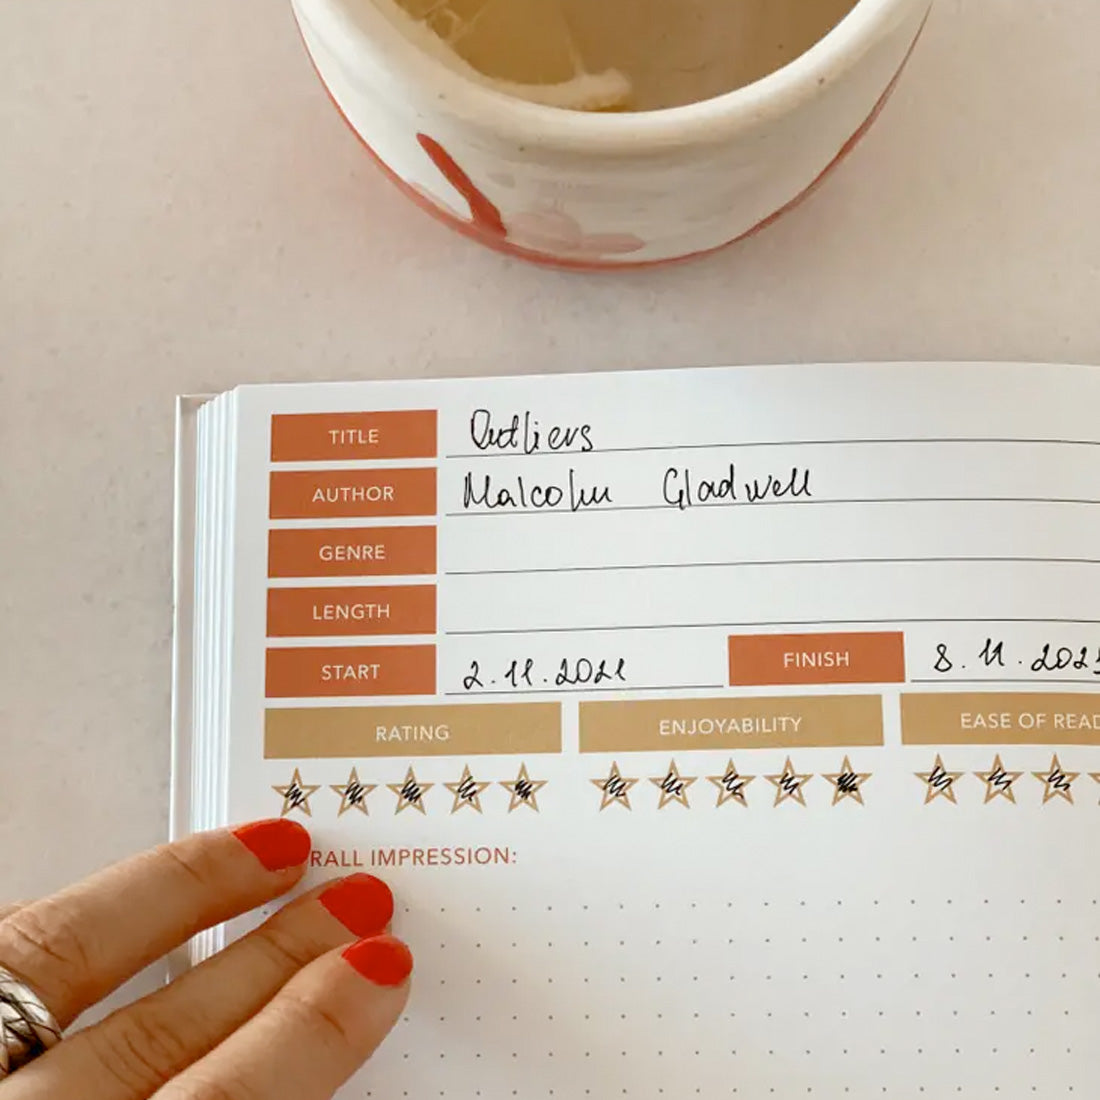 TITLE Outliers
AUTHOR Malcolm Gladwell
GENRE
LENGTH
START 2.11.2021 FINISH 8.11.202
RATING ENJOYABILITY EASE OF READ
RALL IMPRESSION: